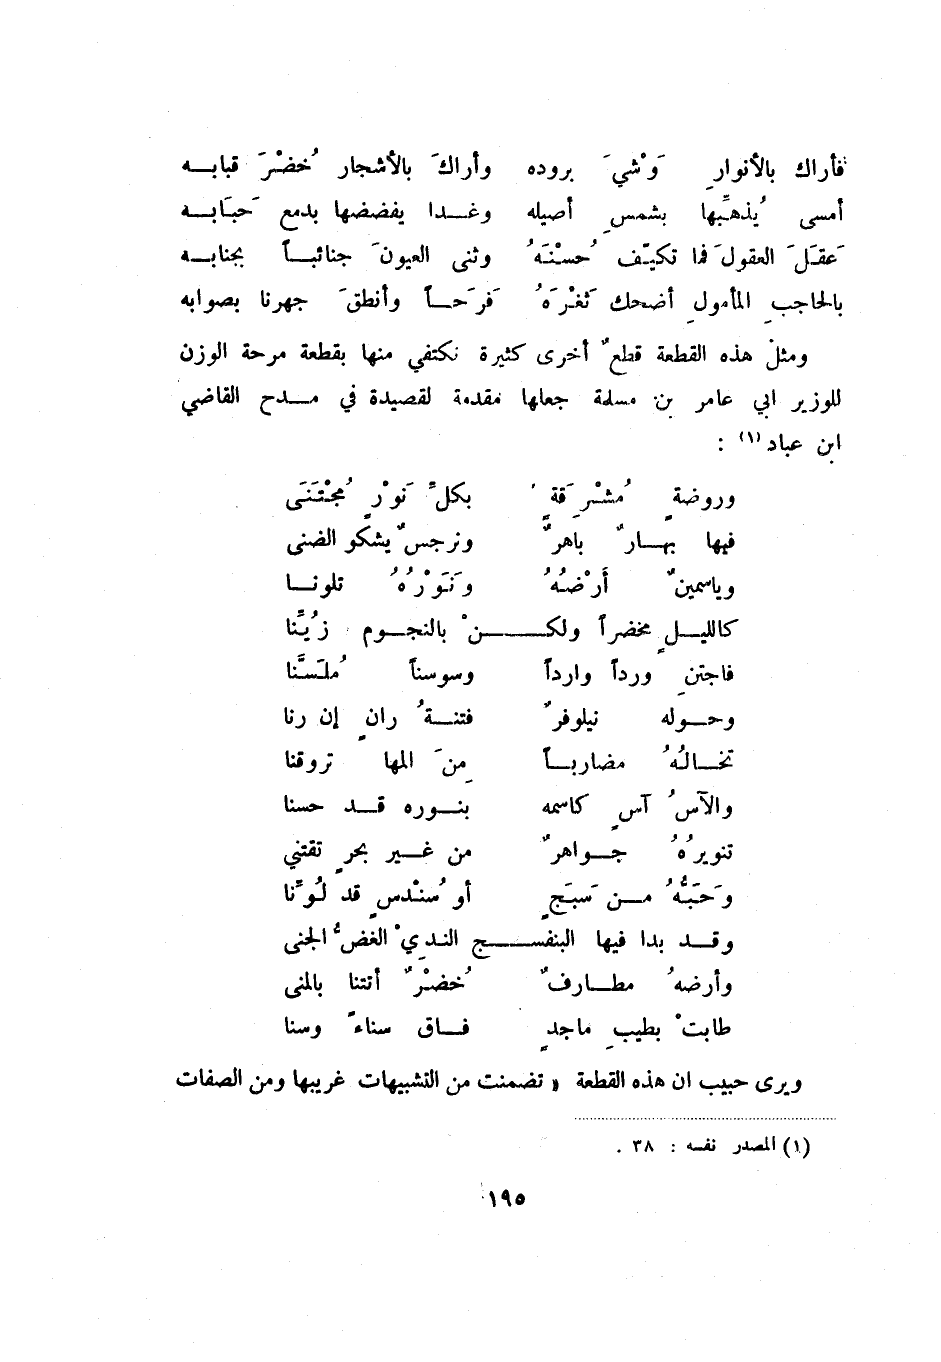 فأراك بالأنوارِ وَشْيَ بروده وأراكَ بالأشجار خُضْرَ قبابه
أمسى يُذهِّبها بشمسِ أصيله وغدا يفضضها بدمع حَبَابه
عَقَلَ العقولَ فما تكيّف حُسْنَهُ وثنى العيونَ جنائباً بجنابه
بالحاجبِ المأمولِ أضحك ثَغْرَهُ فَرَحاً وأنطقَ جهرنا بصوابه
ومثلْ هذه القطعة قطعٌ أخرى كثيرة نكتفي منها بقطعة مرحة الوزن
للوزير ابي عامر بن مسلمة جعلها مقدمة لقصيدة في مدح القاضي
ابن عباد (١) :
وروضةٍ مُشْرِقَةٍ بكلِّ نَوْرٍ مُجْتَنَى
فيها بهارٌ باهرٌ ونرجسٌ يشكو الضنى
وياسمينٌ أَرْضُهُ وَنَوْرُهُ تلونا
كالليلِ مخضراً ولكنْ بالنجوم زُيِّنا
فاجتنِ ورداً وارداً وسوسناً مُلَسَّنا
وحوله نيلوفرٌ فتنةُ رانٍ إن رنا
تخالُهُ مضارباً مِنَ المها تروقنا
والآسُ آسٍ كاسمه بنوره قد حسنا
تنويرُهُ جواهرٌ من غير بحرٍ تقتني
وَحَبُّهُ من سَبَجٍ أو سُندْسٍ قد لُوِّنا
وقد بدا فيها البنفسج النديْ الغضُّ الجنى
وأرضهُ مطارفٌ خُضْرٌ أتتنا بالمنى
طابتْ بطيبِ ماجدٍ فاق سناءً وسنا
ويرى حبيب ان هذه القطعة « تضمنت من التشبيهات غريبها ومن الصفات
(١) المصدر نفسه : ٣٨ .
١٩٥